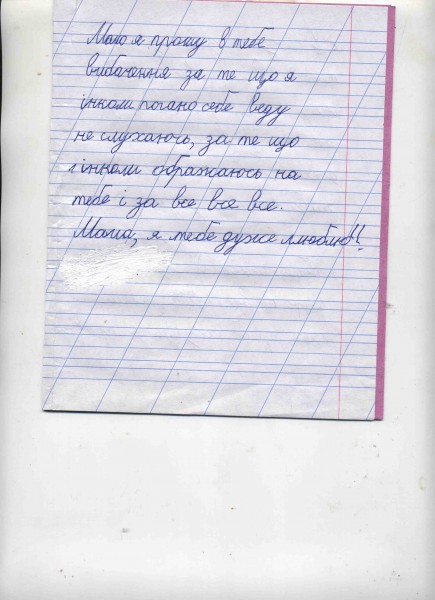 Мамо я прошу в тебе
вибачення за те що я
інколи погано себе веду
не слухаюсь, за те що
і інколи ображаюсь на
тебе і за все все все.
Мама, я тебе дуже люблю!!